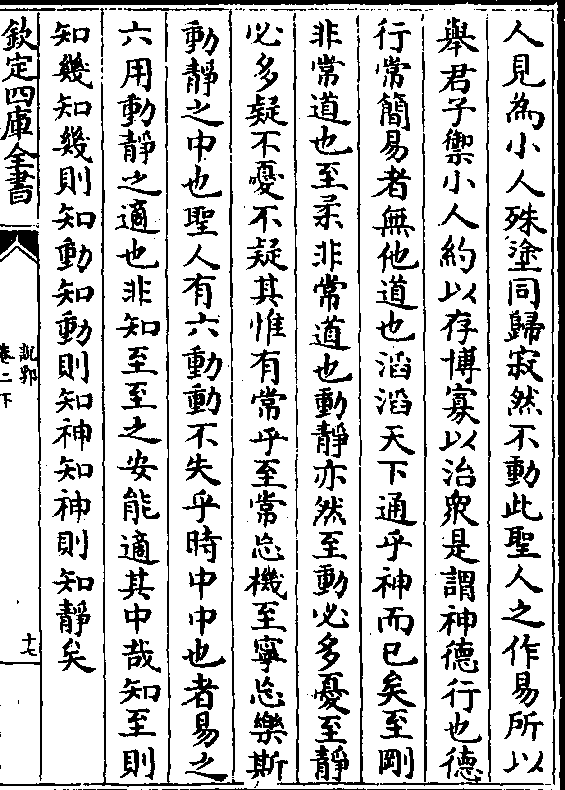 人見為小人殊塗同歸寂然不動此聖人之作易所以
舉君子禦小人約以存博寡以治衆是謂神德行也德
行常簡易者無他道也滔滔天下通乎神而已矣至剛
非常道也至柔非常道也動靜亦然至動必多憂至靜
必多疑不憂不疑其惟有常乎至常忘機至寧忘樂斯
動靜之中也聖人有六動動不失乎時中中也者易之
六用動靜之適也非知至至之安能適其中哉知至則
知幾知幾則知動知動則知神知神則知靜矣
欽定四庫全書
說郛
卷二下
十七